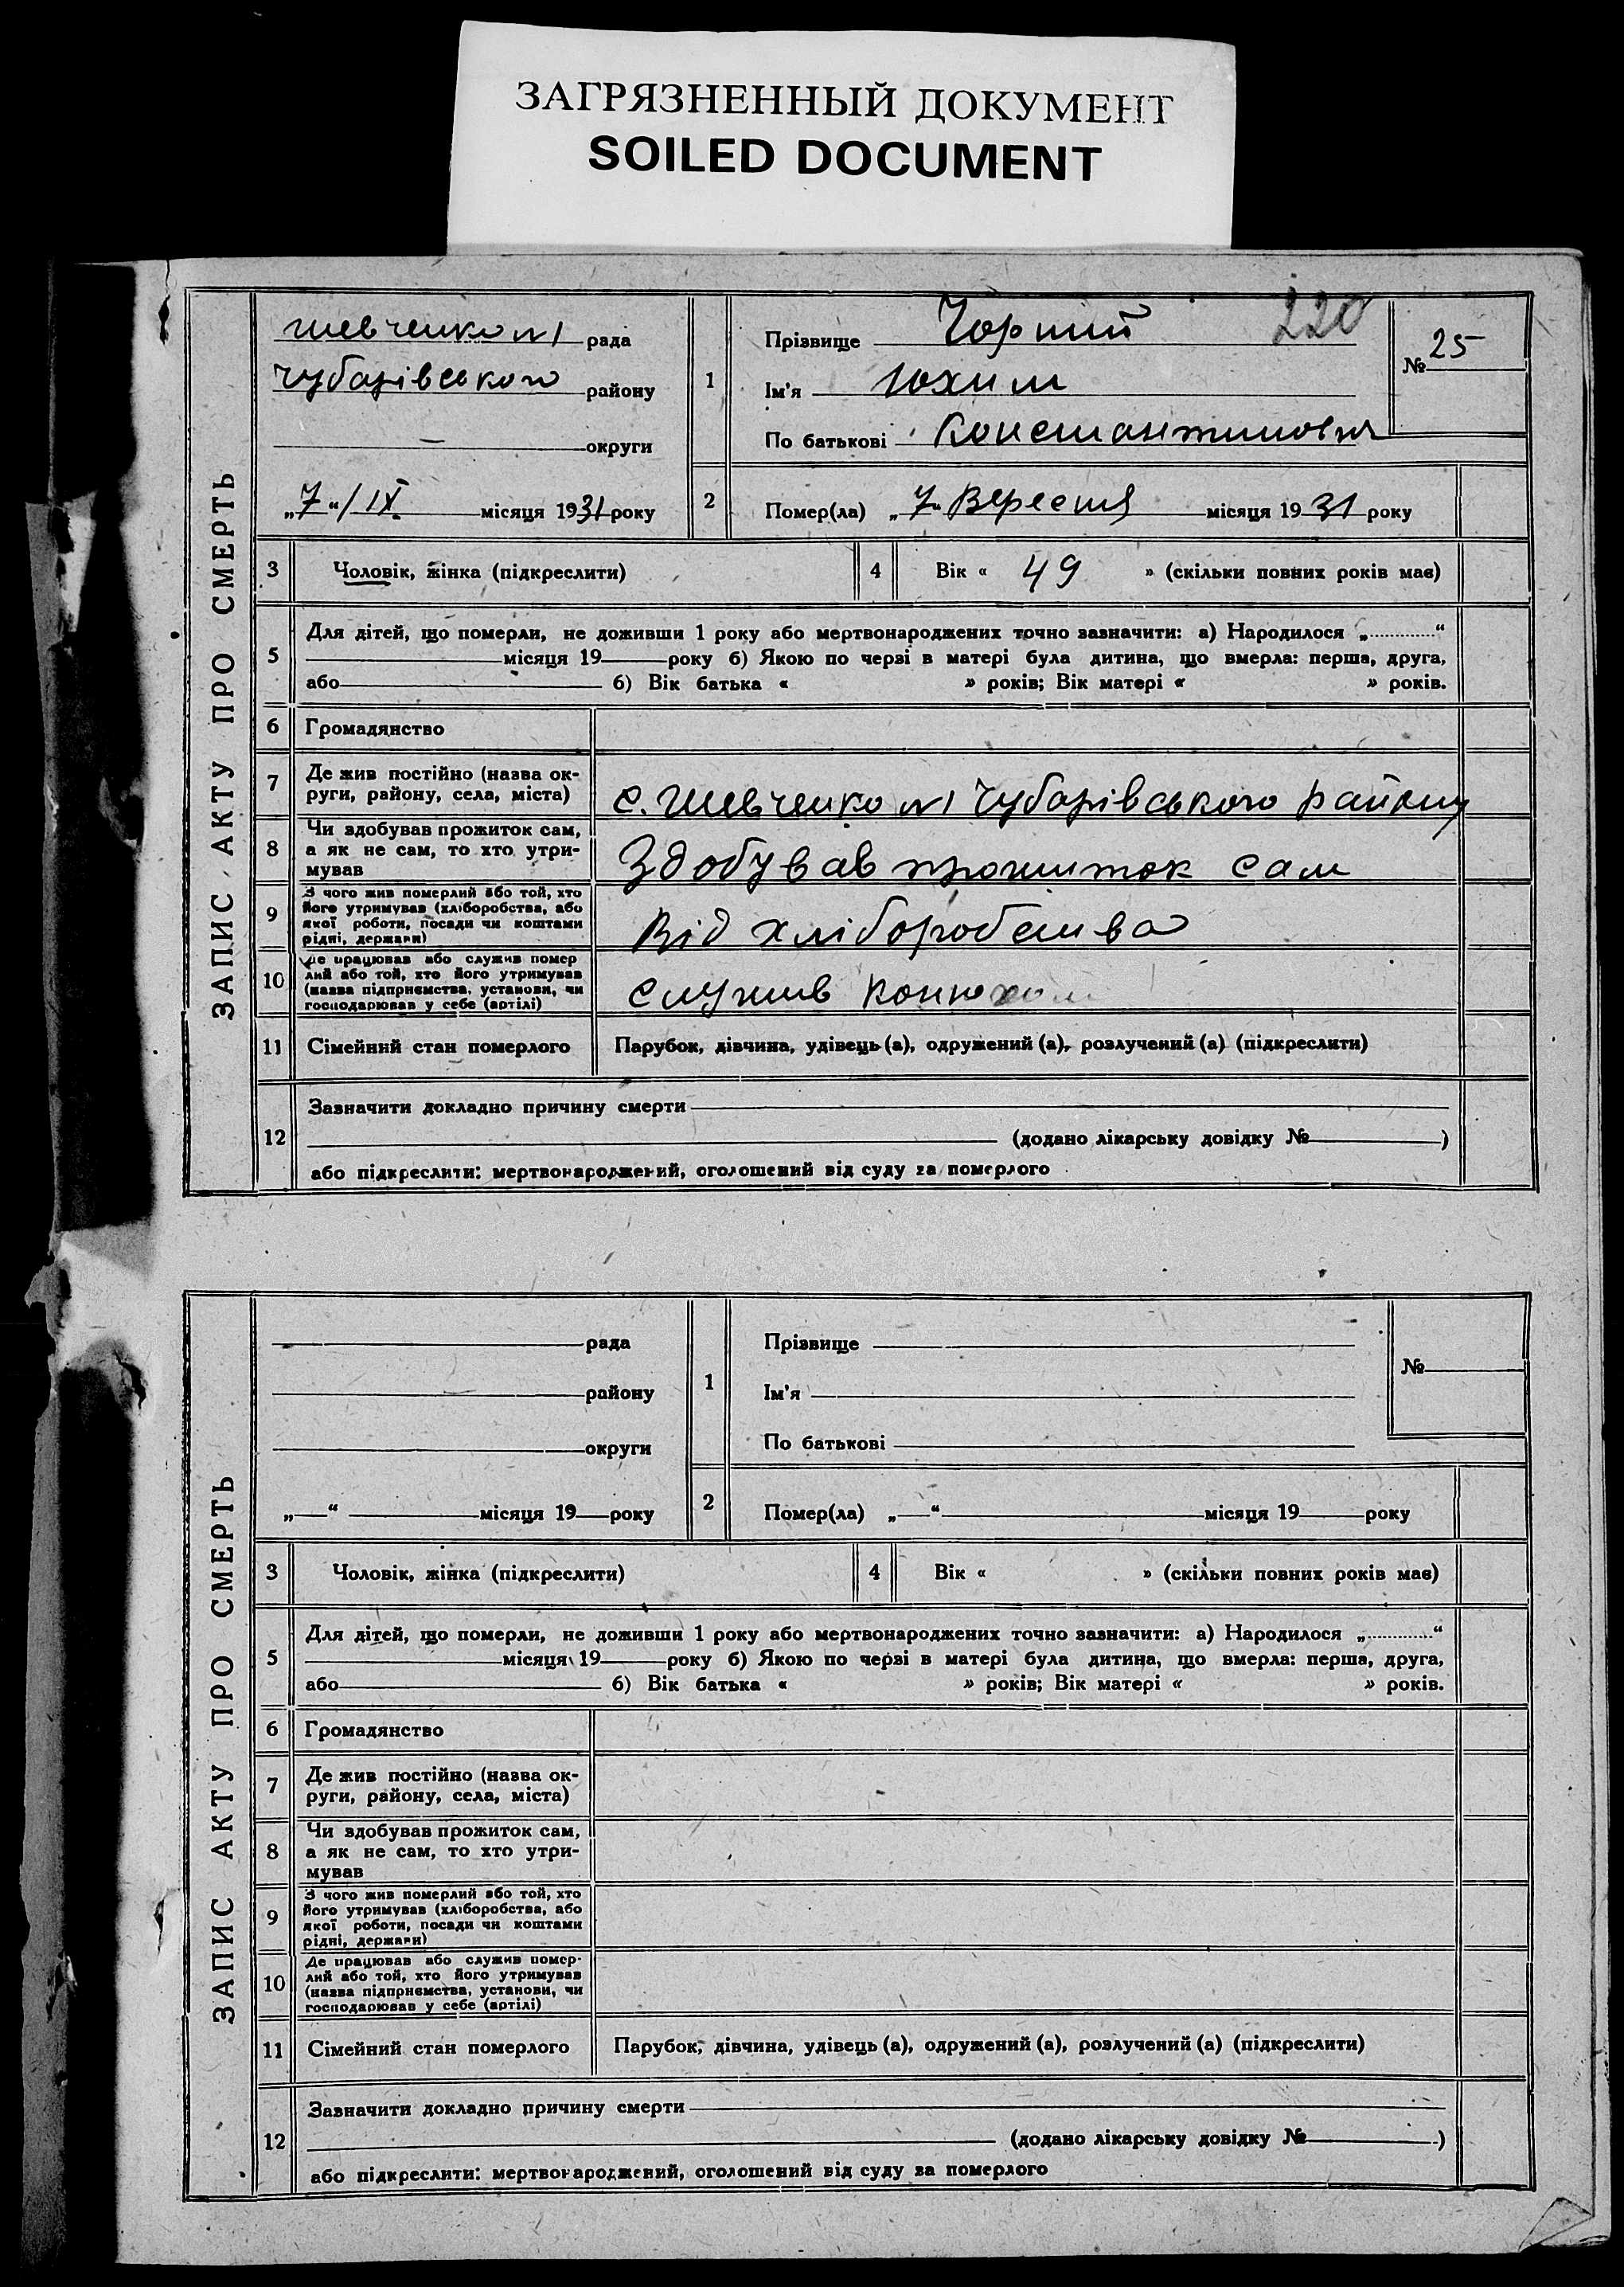 ЗАГРЯЗНЕННЫЙ ДОКУМЕНТ
SOILED DOCUMENT
ЗАПИС АКТУ ПРО СМЕРТЬ
Шевченко №1 рада
Чубарівського району
— округи
„7“/ІХ. місяця 1931 року
1
Прізвище Чорний
220
Ім'я Юхим
По батькові Константинович
№ 25
2
Помер(ла) „7“ Вересня місяця 1931 року
3 Чоловік, жінка (підкреслити)
4 Вік « 49 » (скільки повних років має)
5
Для дітей, що померли, не доживши 1 року або мертвонароджених точно зазначити: а) Народилося „ “
місяця 19 року б) Якою по черві в матері була дитина, що вмерла: перша, друга,
або б) Вік батька « » років; Вік матері « » років.
6 Громадянство
7
Де жив постійно (назва ок-
руги, району, села, міста)
с. Шевченко №1 Чубарівського району
8
Чи здобував прожиток сам,
а як не сам, то хто утри-
мував
Здобував прожиток сам
9
З чого жив померлий або той, хто
його утримував (хліборобства, або
якої роботи, посади чи коштами
рідні, держави)
Від хліборобства
10
Де працював або служив помер
лий або той, хто його утримував
(назва підприємства, установи, чи
господарював у себе (артілі)
служив конюхом
11 Сімейний стан померлого
Парубок, дівчина, удівець (а), одружений (а), розлучений (а) (підкреслити)
12
Зазначити докладно причину смерти
(додано лікарську довідку № )
або підкреслити: мертвонароджений, оголошений від суду за померлого
ЗАПИС АКТУ ПРО СМЕРТЬ
рада
району
округи
„ “ місяця 19 року
1
Прізвище
Ім'я
По батькові
№
2
Помер(ла) „ “ місяця 19 року
3 Чоловік, жінка (підкреслити)
4 Вік « » (скільки повних років має)
5
Для дітей, що померли, не доживши 1 року або мертвонароджених точно зазначити: а) Народилося „ “
місяця 19 року б) Якою по черві в матері була дитина, що вмерла: перша, друга,
або б) Вік батька « » років; Вік матері « » років.
6 Громадянство
7
Де жив постійно (назва ок-
руги, району, села, міста)
8
Чи здобував прожиток сам,
а як не сам, то хто утри-
мував
9
З чого жив померлий або той, хто
його утримував (хліборобства, або
якої роботи, посади чи коштами
рідні, держави)
10
Де працював або служив помер-
лий або той, хто його утримував
(назва підприємства, установи, чи
господарював у себе (артілі)
11 Сімейний стан померлого
Парубок, дівчина, удівець (а), одружений (а), розлучений (а) (підкреслити)
12
Зазначити докладно причину смерти
(додано лікарську довідку № )
або підкреслити: мертвонароджений, оголошений від суду за померлого